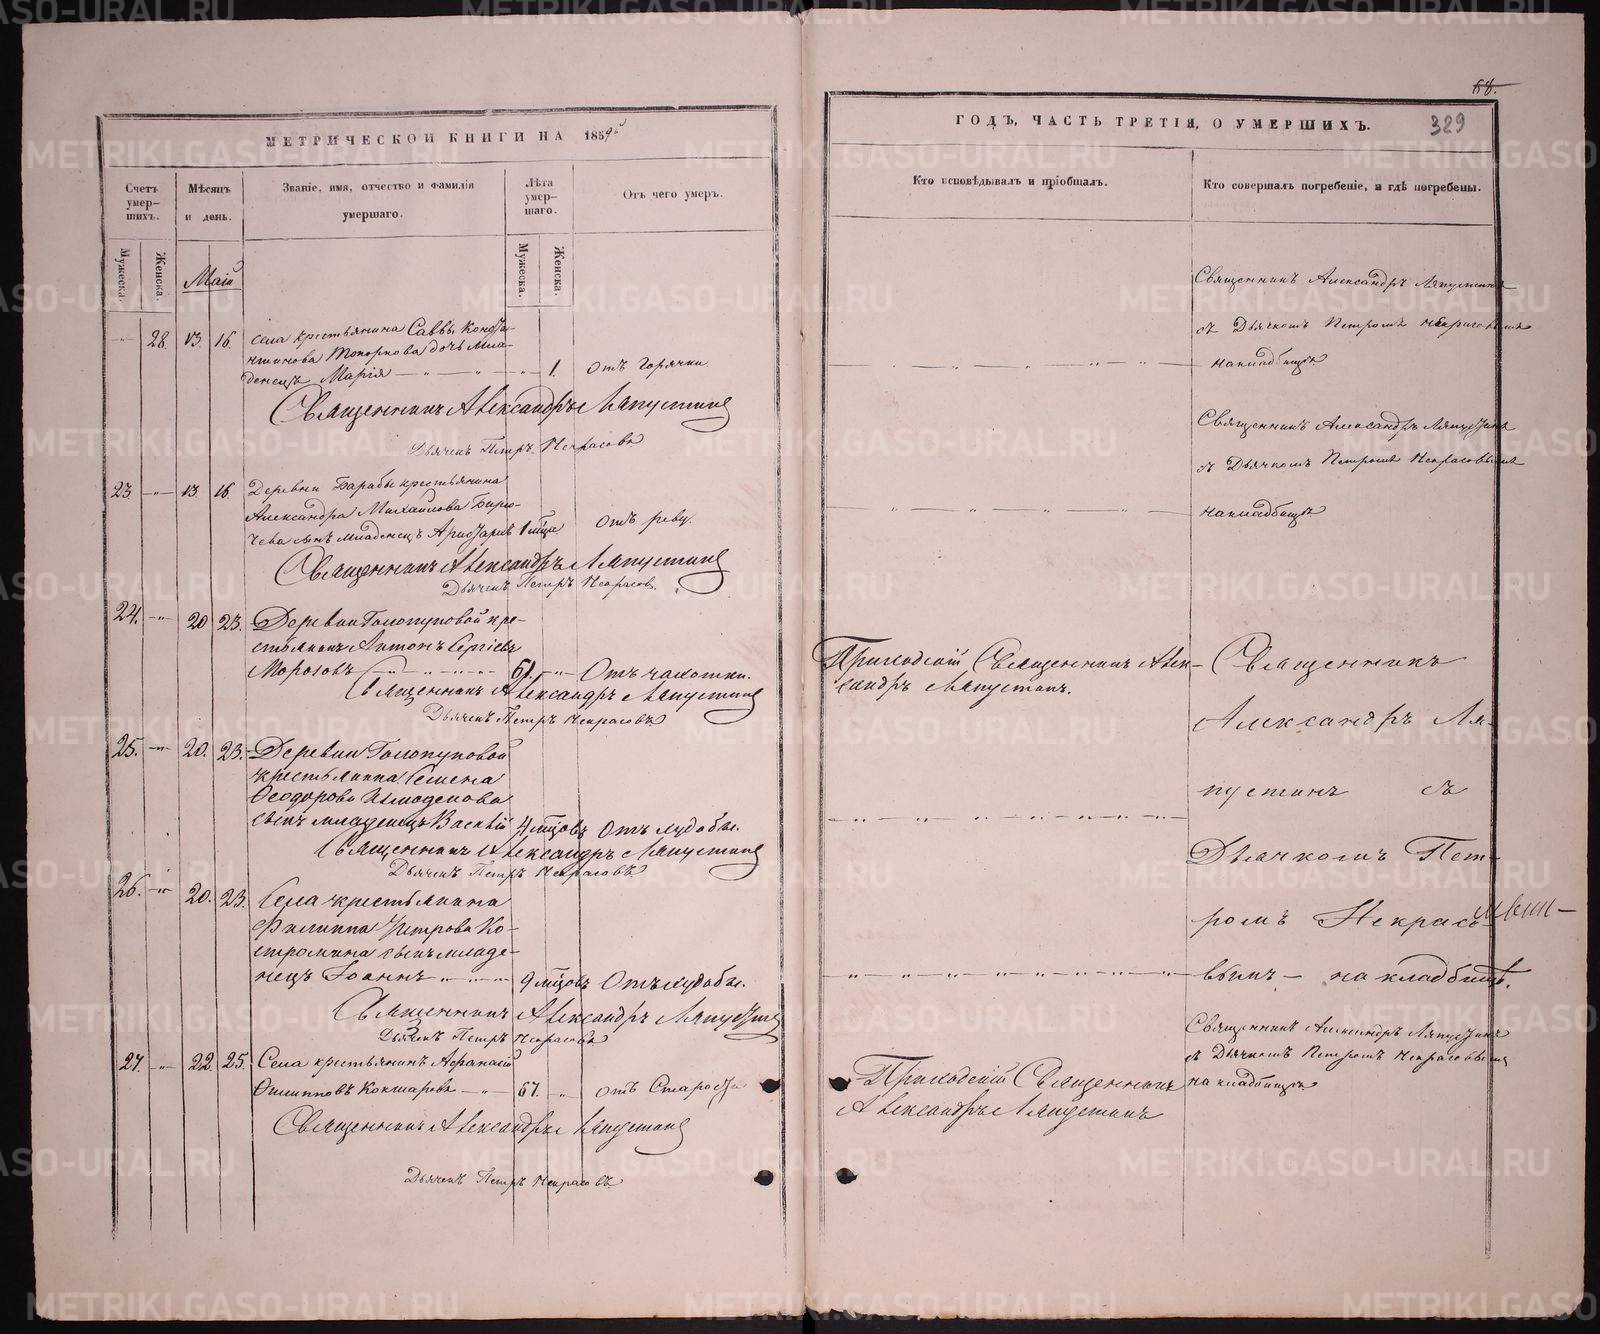 68.
МЕТРИЧЕСКОЙ КНИГИ НА 1859й
ГОДЪ, ЧАСТЬ ТРЕТІЯ, О УМЕРШИХЪ.
329
Счетъ умершихъ.
Мѣсяцъ и день.
Званіе, имя, отчество и фамилія умершаго.
Лѣта умершаго.
Отъ чего умеръ.
Кто исповѣдывалъ и пріобщалъ.
Кто совершалъ погребеніе, и гдѣ погребены.
Мужеска.
Женска.
Маій
Мужеска.
Женска.
28. 13. 16. села крестьянина Саввы Конста-
нтинова Топоркова дочь мла-
денецъ Марія 1. отъ горячки
Священникъ Александръ Ляпустинъ
Дьячекъ Петръ Некрасовъ
Священникъ Александръ Ляпустинъ
съ Дьячкомъ Петромъ Некрасовымъ
на кладбищѣ
23 13. 16. Деревни Барабы крестьянина
Александра Михайлова Бирю-
чева сынъ младенецъ 1 мѣца отъ реву.
Священникъ Александръ Ляпустинъ
Дьячекъ Петръ Некрасов.
Священникъ Александръ Ляпустинъ
съ Дьячкомъ Петромъ Некрасовымъ
на кладбищѣ
24. 20 23. Деревни Голопуповой кре-
стьянинъ Антонъ Сергіевъ
Морозовъ 61. Отъ чахотки.
Священникъ Александръ Ляпустинъ
Дьячекъ Петръ Некрасовъ
Приходскій Священникъ Алек-
сандръ Ляпустинъ.
25. 20. 23. Деревни Голопуповой
крестьянина Семена
Ѳеодорова
сынъ младенецъ Василій 4 мѣцовъ Отъ худобы.
Священникъ Александръ Ляпустинъ
Дьячекъ Петръ Некрасовъ.
26. 20. 23. Села крестьянина
Филиппа Петрова Ко-
стромина сынъ младе-
нецъ Іоаннъ 9 мѣцовъ Отъ худобы.
Священникъ Александръ Ляпустинъ
Дьячекъ Петръ Некрасовъ
Священникъ
Александръ Ля-
пустинъ съ
Дьячкомъ Пет-
ромъ Некрасо-
вымъ — на кладбищѣ.
27. 22. 25. Села крестьянинъ Афанасій
Филипповъ Кокшаровъ 67. отъ Староста
Священникъ Александръ Ляпустинъ
Дьячекъ Петръ Некрасовъ
Приходскій Священникъ
Александръ Ляпустинъ
Священникъ Александръ Ляпустинъ
съ Дьячкомъ Петромъ Некрасовымъ
на кладбищѣ
METRIKI.GASO-URAL.RU